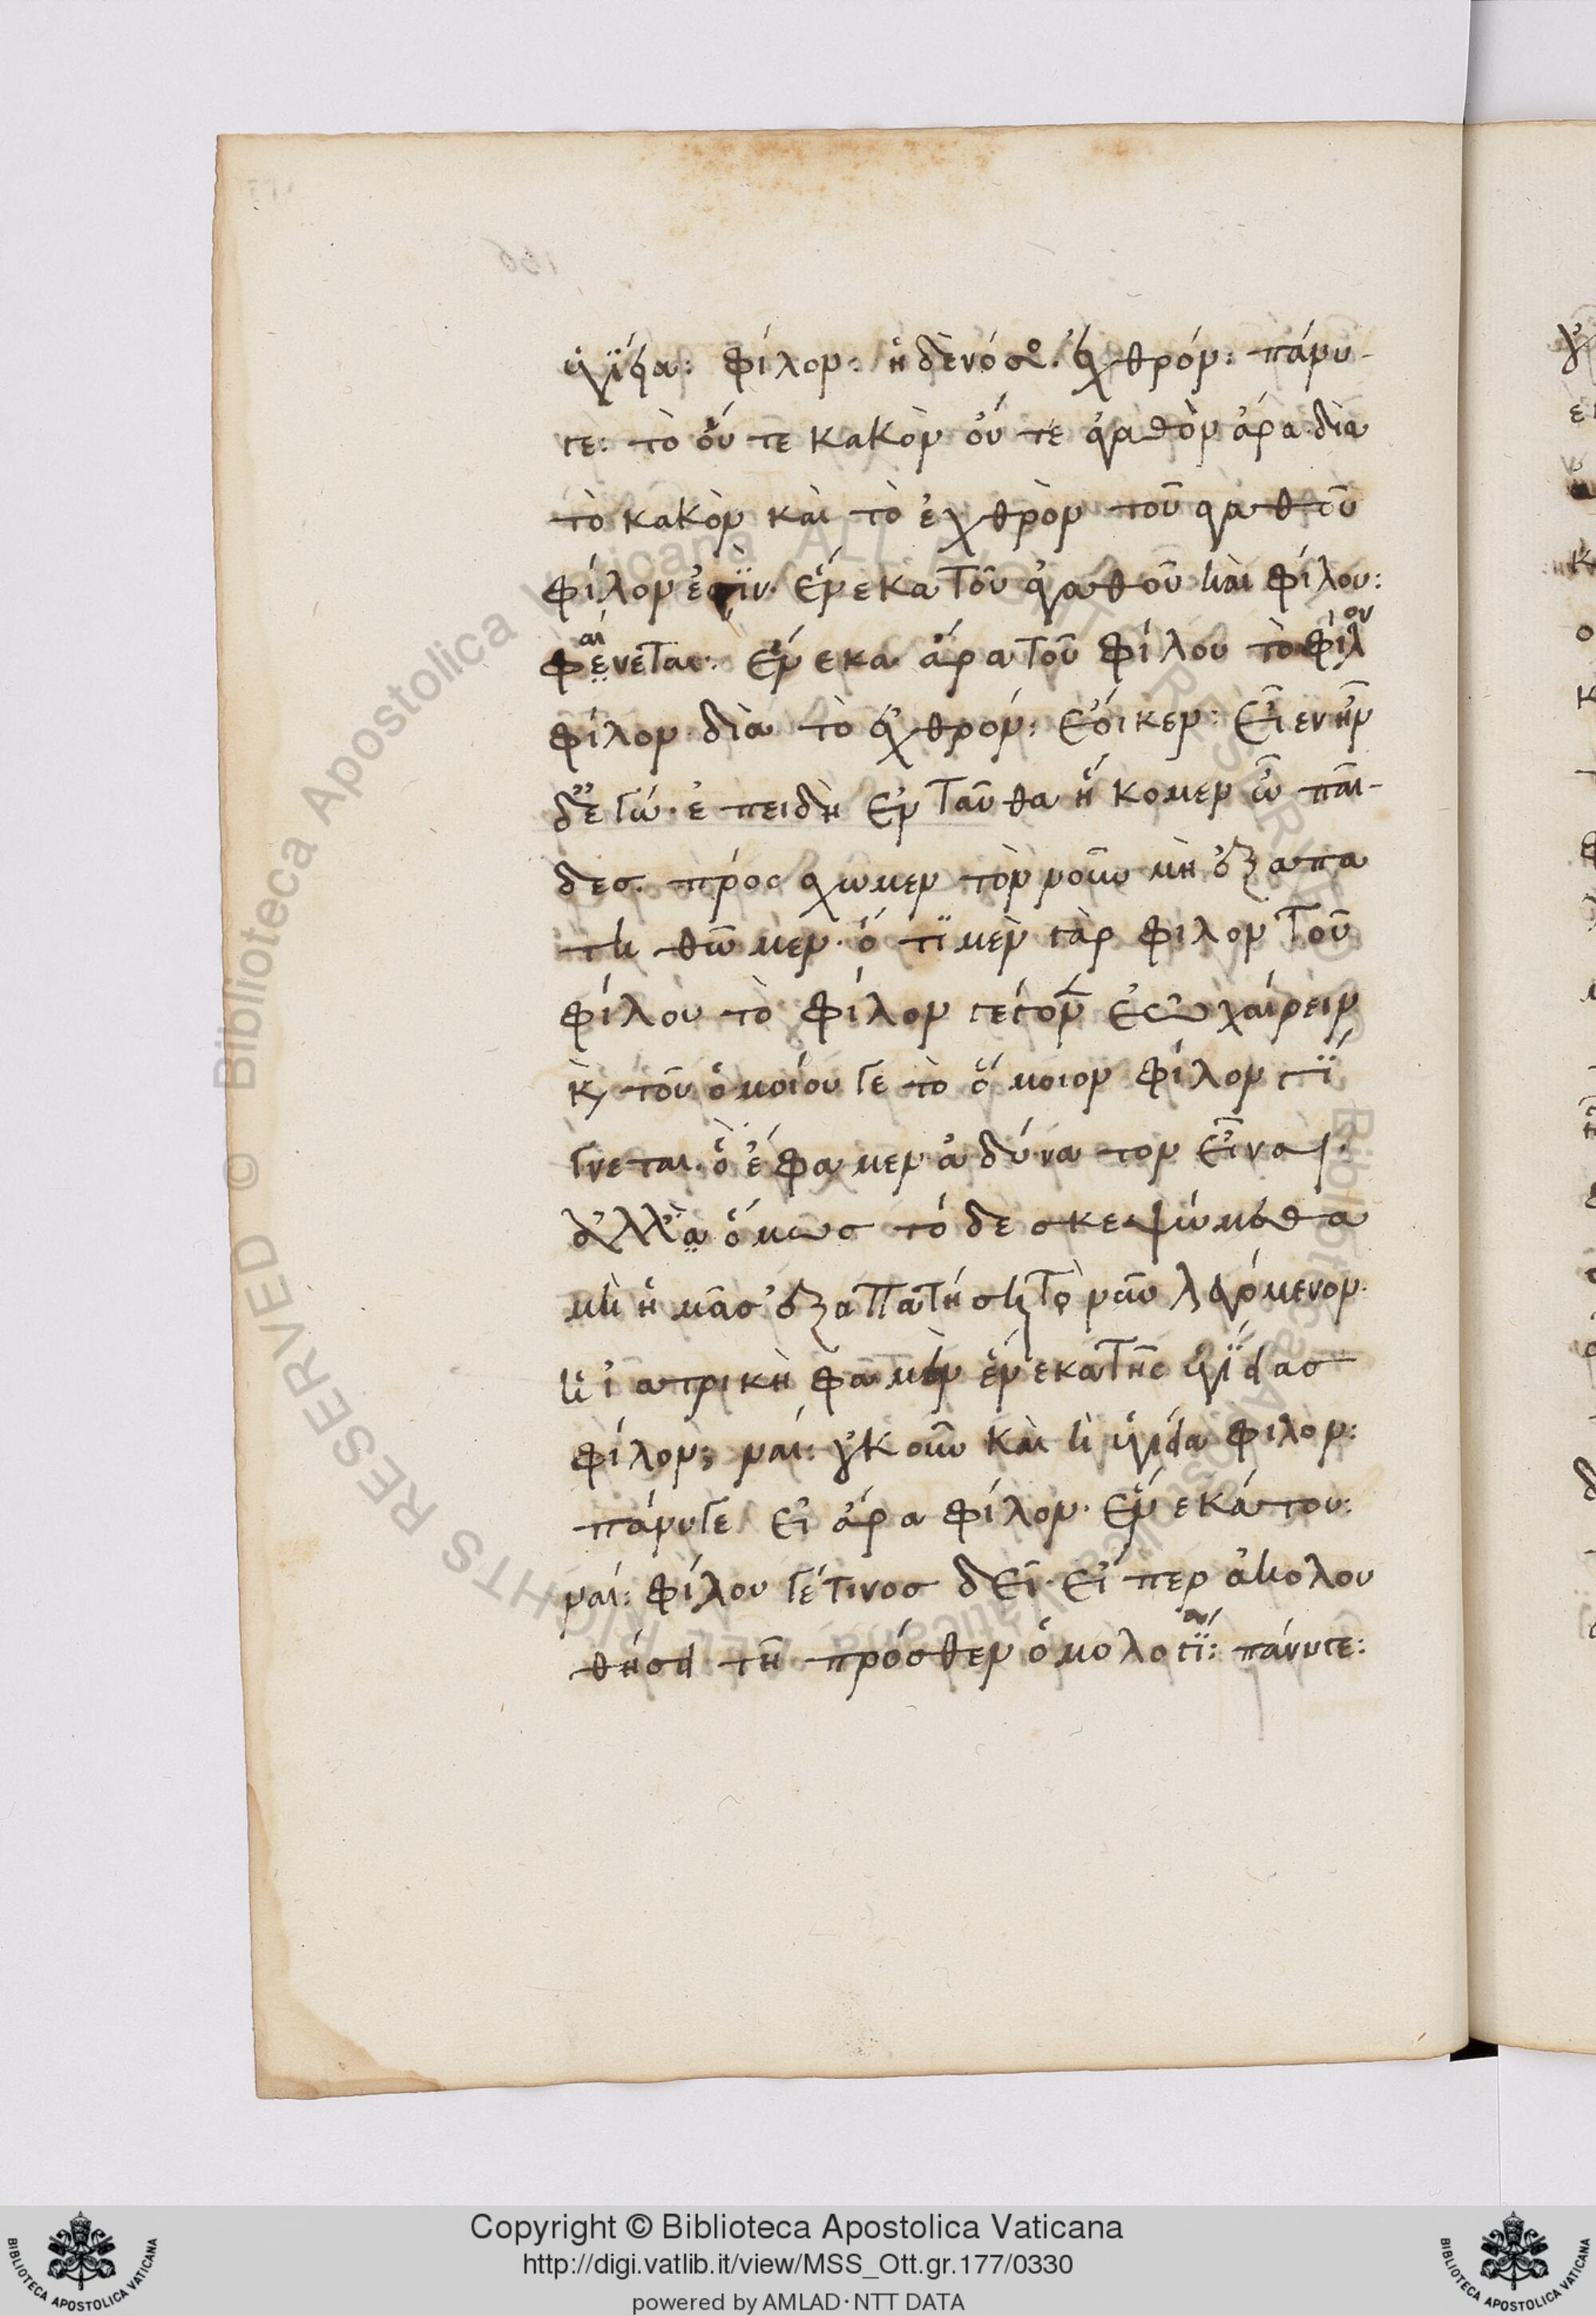 ὑγίεια: φίλον: ἡ δὲ νόσος· ἐχθρόν: πάνυ-
γε: τὸ οὔτε κακὸν οὔτε ἀγαθὸν ἄρα διὰ
τὸ κακὸν καὶ τὸ ἐχθρὸν τοῦ ἀγαθοῦ
φίλον ἐστὶν· ἕνεκα τοῦ ἀγαθοῦ καὶ φίλου:
φαίνεται: ἕνεκα ἄρα τοῦ φίλου τὸ φίλον
φίλον διὰ τὸ ἐχθρόν: ἔοικεν: εἶεν ἦν
δ' ἐγώ· ἐπειδὴ ἐνταῦθα ἥκομεν ὦ παῖ-
δες· πρόσχωμεν τὸν νοῦν μὴ ἐξαπα
τηθῶμεν· ὅτι μὲν γὰρ φίλον τοῦ
φίλου τὸ φίλον γέγονεν ἐῶ χαίρειν
κ τοῦ ὁμοίου γε τὸ ὅμοιον φίλον γί
γνεται· ὅ ἔφαμεν ἀδύνατον εἶναι·
ἀλλὰ ὅμως τόδε σκεψώμεθα
μὴ ἡμᾶς ἐξαπατήσῃ τὸ νῦν λεγόμενον·
ἡ ἰατρικὴ φαμὲν ἕνεκα τῆς ὑγιείας
φίλον; ναί: οὐκοῦν καὶ ἡ ὑγίεια φίλον:
πάνυγε εἰ ἄρα φίλον· ἕνεκά του:
ναί: φίλου γέ τινος δεῖ· εἴπερ ἀκολου
θήσει τῇ πρόσθεν ὁμολογίᾳ: πάνυγε:
Copyright © Biblioteca Apostolica Vaticana
http://digi.vatlib.it/view/MSS_Ott.gr.177/0330
powered by AMLAD·NTT DATA